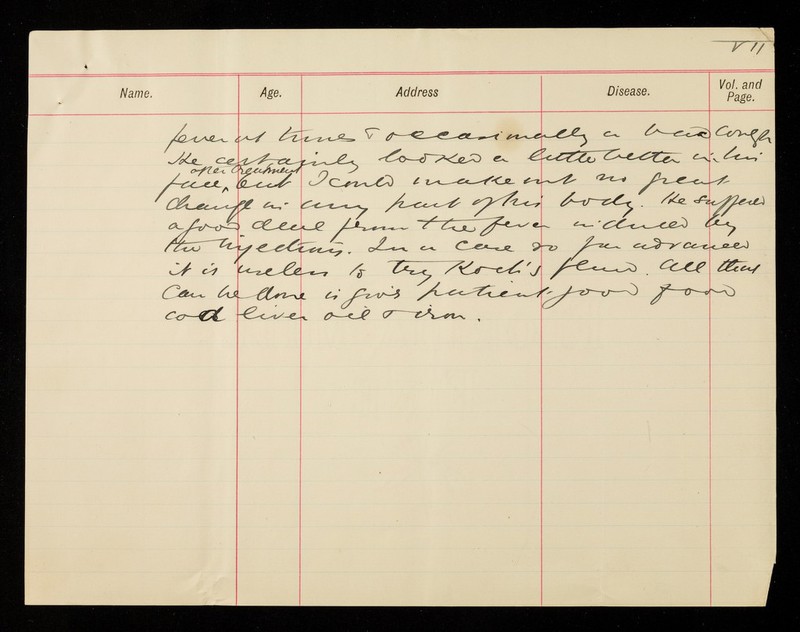 VII
Name. Age. Address Disease. Vol. and Page.
fever at times & occasionally a bad cough
He certainly looked a little better in his
after treatment
face, but I could make out no great
change in any part of his body. He suffered
a good deal from the fever induced by
the injections. In a case so far advanced
it is useless to try Koch's fluid. All that
can be done is give patient good food
cod liver oil & iron.